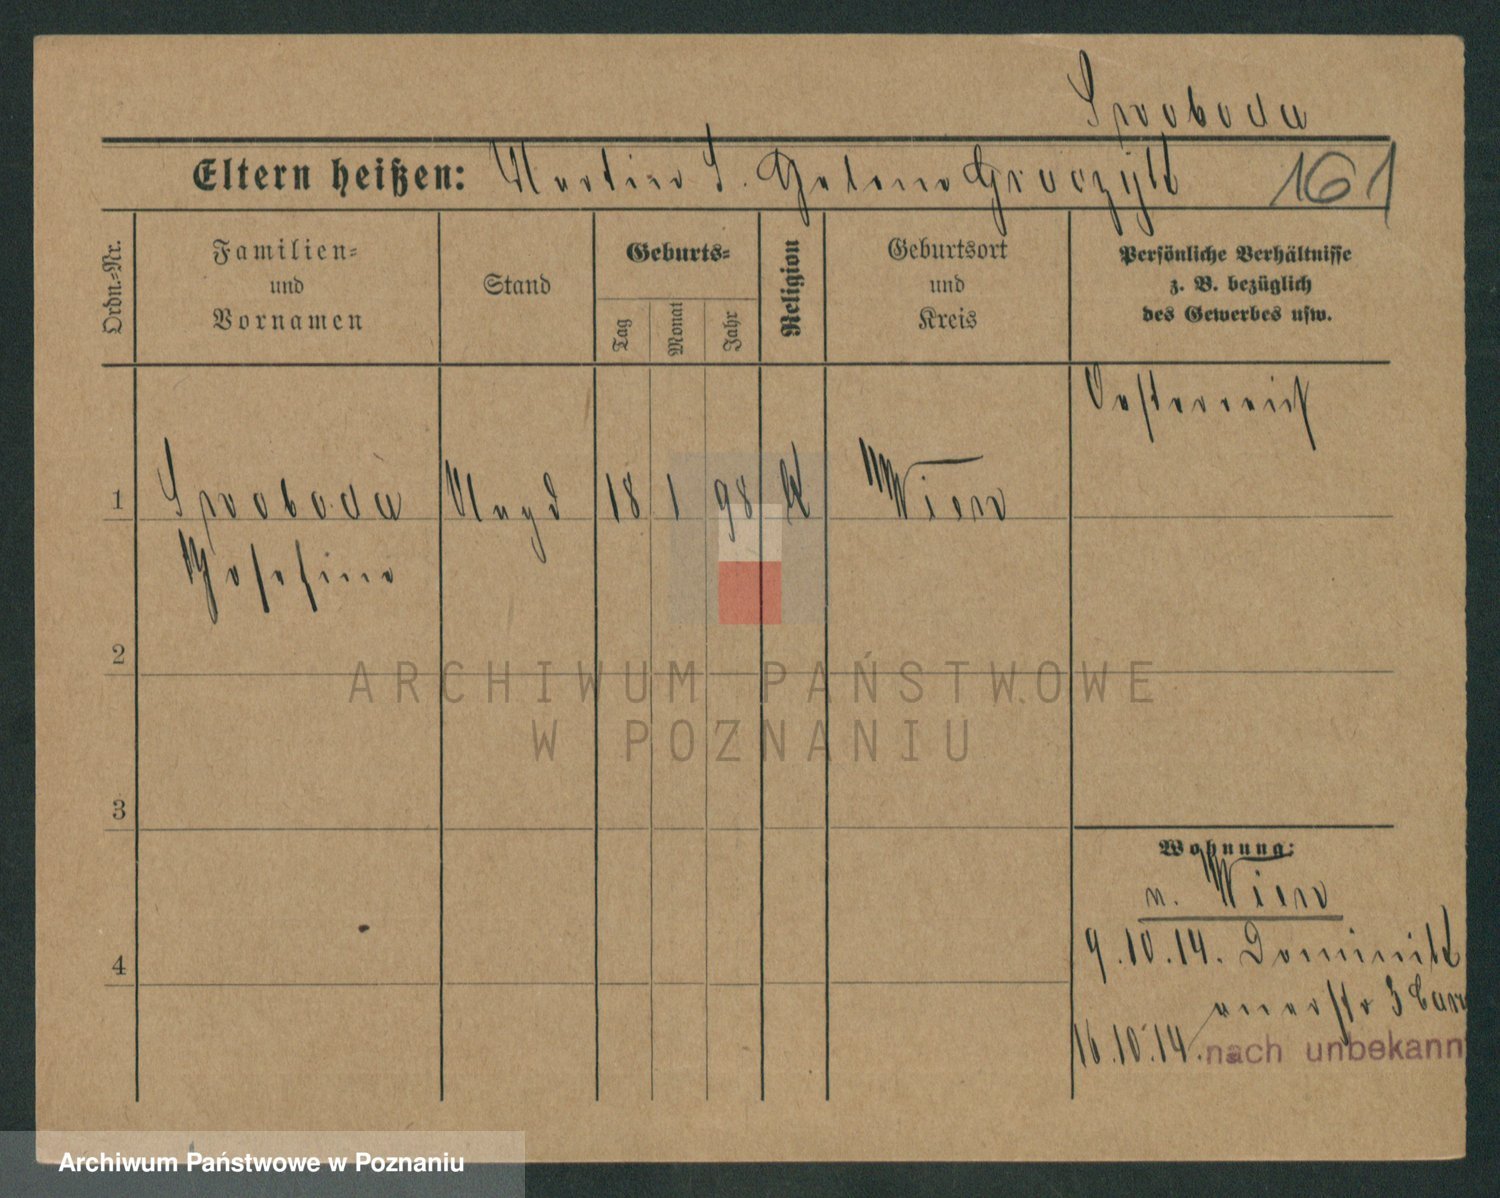 Swoboda
Eltern heißen: Martin S. Helene Graczyk 161
Ordn.-Nr.
Familien-
und
Vornamen
Stand
Geburts-
Tag
Monat
Jahr
Religion
Geburtsort
und
Kreis
Persönliche Verhältnisse
z. B. bezüglich
des Gewerbes usw.
Oesterreich
1 Swoboda Magd 18 1 98 K Wien
Josefine
2
ARCHIWUM PAŃSTWOWE
W POZNANIU
3
Wohnung:
n. Wien
9.10.14. Dominik
anerstr 3
4
16.10.14. nach unbekann
Archiwum Państwowe w Poznaniu